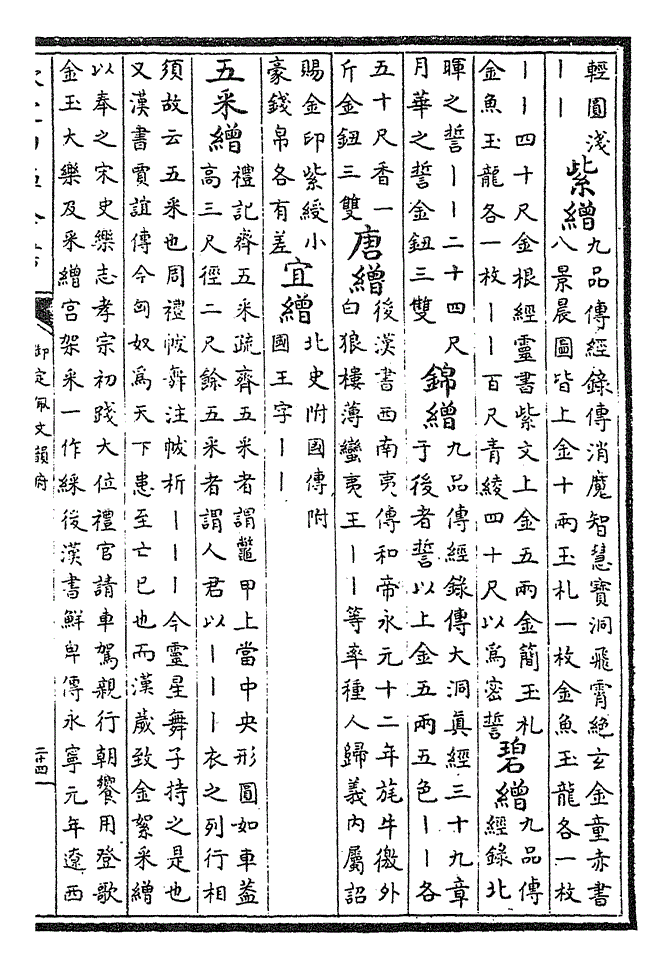 輕圓淺
丨丨
紫繒
九品傳經錄傳消魔智慧寶洞飛霄絶玄金童赤書
八景晨圖皆上金十兩玉札一枚金魚玉龍各一枚
丨丨四十尺金根經靈書紫文上金五兩金簡玉札
金魚玉龍各一枚丨丨百尺青綾四十尺以為密誓
碧繒
九品傳
經錄北
暉之誓丨丨二十四尺
月華之誓金鈕三雙
錦繒
九品傳經錄傳大洞真經三十九章
于後者誓以上金五兩五色丨丨各
五十尺香一
斤金鈕三雙
唐繒
後漢書西南夷傳和帝永元十二年旄牛徼外
白狼樓薄蠻夷王丨丨等率種人歸義內屬詔
賜金印紫綬小
豪錢帛各有差
宜繒
北史附國傳附
國王字丨丨
五采繒
禮記齊五采疏齊五采者謂鼈甲上當中央形圓如車蓋
高三尺徑二尺餘五采者謂人君以丨丨丨衣之列行相
須故云五采也周禮帗舞注帗析丨丨丨今靈星舞子持之是也
又漢書賈誼傳今匈奴為天下患至亡已也而漢歲致金絮采繒
以奉之宋史樂志孝宗初踐大位禮官請車駕親行朝饗用登歌
金玉大樂及采繒宮架采一作綵後漢書鮮卑傳永寧元年遼西
御定佩文韻府
二十四